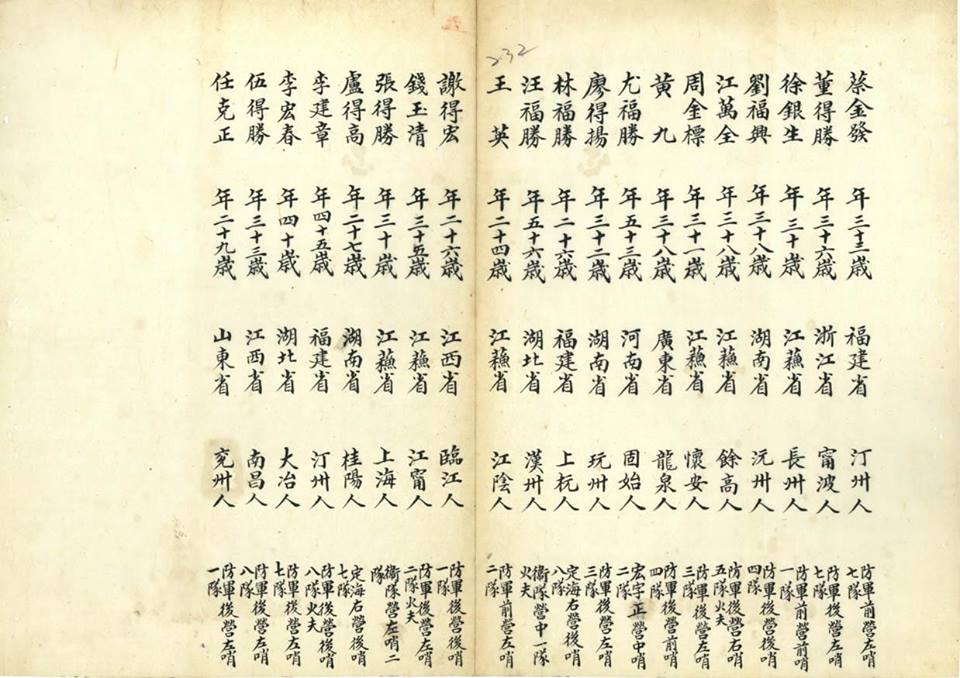 232
蔡金發 年三十三歲 福建省 汀州人 防軍前營左哨七隊
董得勝 年三十六歲 浙江省 甯波人 防軍後營左哨七隊
徐銀生 年三十歲 江蘇省 長州人 防軍前營前哨一隊
劉福興 年三十八歲 湖南省 沅州人 防軍後營後哨四隊
江萬全 年三十八歲 江蘇省 餘高人 防軍後營右哨五隊火夫
周金標 年三十一歲 江蘇省 懷安人 防軍後營左哨三隊
黃九 年三十八歲 廣東省 龍泉人 防軍後營前哨四隊
尤福勝 年五十三歲 河南省 固始人 宏字正營中哨二隊
廖得揚 年三十二歲 湖南省 玩州人 防軍後營左哨三隊
林福勝 年二十六歲 福建省 上杭人 定海右營後哨八隊
汪福勝 年五十六歲 湖北省 漢州人 衞隊營中一隊火夫
王英 年二十四歲 江蘇省 江陰人 防軍前營左哨二隊
謝得宏 年二十六歲 江西省 臨江人 防軍後營後哨一隊
錢玉清 年三十五歲 江蘇省 江甯人 防軍後營左哨二隊火夫
張得勝 年三十歲 江蘇省 上海人 衞隊營左哨二隊
盧得高 年二十七歲 湖南省 桂陽人 定海右營後哨七隊
李建章 年四十五歲 福建省 汀州人 防軍後營後哨八隊火夫
李宏春 年四十歲 湖北省 大冶人 防軍後營左哨七隊
伍得勝 年三十三歲 江西省 南昌人 防軍後營左哨八隊
任克正 年二十九歲 山東省 兖州人 防軍後營左哨一隊